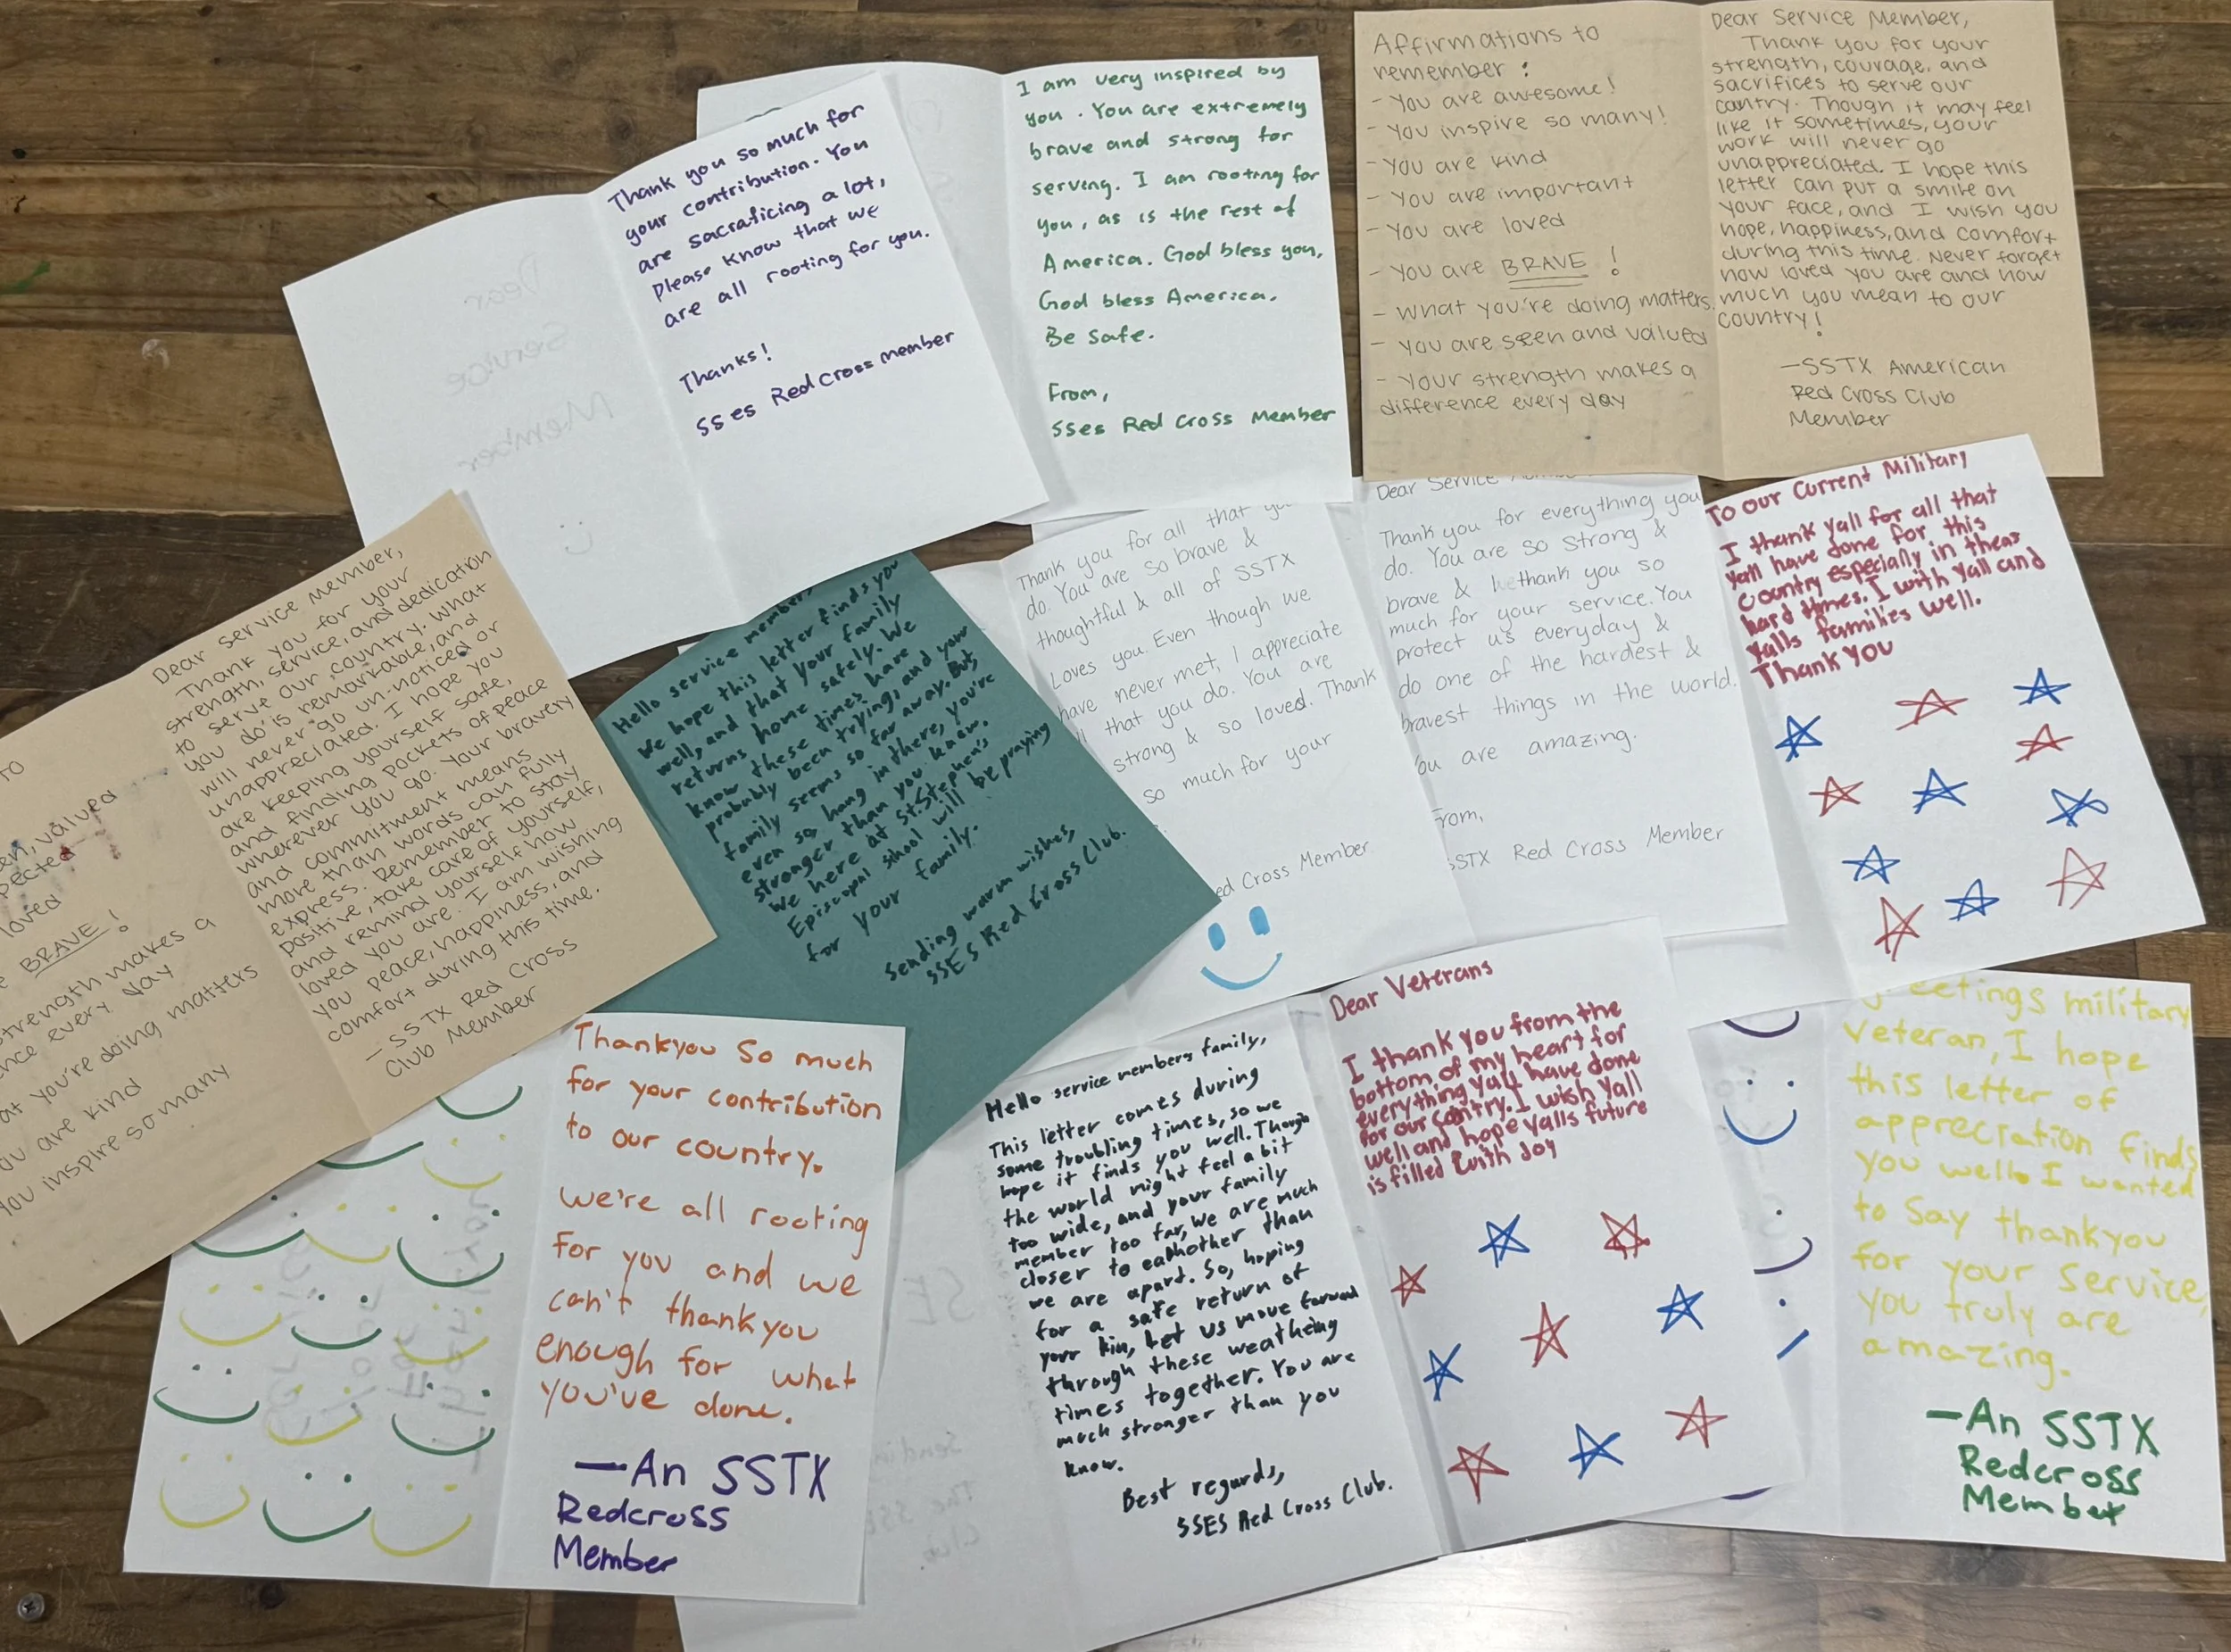 Thank you so much for
your contribution. You
are sacraficing a lot,
Please know that we
are all rooting for you.
Thanks!
SSes Red Cross member
Dear
Service
Member
I am very inspired by
you. You are extremely
brave and strong for
serving. I am rooting for
you, as is the rest of
America. God bless you,
God bless America.
Be safe.
From,
SSes Red Cross Member
Affirmations to
remember:
- You are awesome!
- You inspire so many!
- You are kind
- You are important
- You are loved
- You are BRAVE!
- What you're doing matters
- You are seen and valued
- Your strength makes a
difference every day
Dear Service Member,
Thank you for your
strength, courage, and
sacrifices to serve our
country. Though it may feel
like it sometimes, your
work will never go
unappreciated. I hope this
letter can put a smile on
your face, and I wish you
hope, happiness, and comfort
during this time. Never forget
how loved you are and how
much you mean to our
country!
-SSTX American
Red Cross Club
Member
TO
valued
loved
BRAVE!
strength makes a
every day
you're doing matters
kind
You inspire so many
Dear Service Member,
Thank you for your
strength, service, and dedication
to serve our country. What
you do is remarkable, and
will never go un-noticed or
unappreciated. I hope you
are keeping yourself safe,
and finding pockets of peace
wherever you go. Your bravery
and commitment means
more than words can fully
express. Remember to stay
positive, take care of yourself,
and remind yourself how
loved you are. I am wishing
you peace, happiness, and
comfort during this time.
- SSTX Red Cross
Club Member
Hello service members
We hope this letter finds you
well, and that your family
returns home safely. We
know these times have
probably been trying, and your
family seems so far away. But,
even so, hang in there, you're
stronger than you know.
We here at St. Stephen's
Episcopal school will be praying
for your family.
Sending warm wishes,
SSES Red Cross Club.
Thank you for all that
do. You are so brave &
thoughtful & all of SSTX
Loves you. Even though we
have never met, I appreciate
that you do. You are
strong & so loved. Thank
so much for your
Cross Member
Dear Service
Thank you for everything you
do. You are so strong &
brave & thank you so
much for your service. You
protect us everyday &
do one of the hardest &
bravest things in the world.
are amazing.
From,
SSTX Red Cross Member
To our Current Military
I thank yall for all that
yall have done for this
Country especially in theas
hard times. I with yall and
yalls families well.
Thank You
Thankyou So much
for your contribution
to our country.
We're all rooting
for you and we
can't thank you
enough for what
you've done.
—An SSTX
Redcross
Member
Hello service members family,
This letter comes during
some troubling times, so we
hope it finds you well. Though
the world might feel a bit
too wide, and your family
member too far, we are much
closer to eachother than
we are apart. So, hoping
for a safe return of
your kin, let us move forward
through these weathing
times together. You are
much stronger than you
know.
Best regards,
SSES Red Cross Club.
Dear Veterans
I thank you from the
bottom of my heart for
everything yall have done
for our Contry. I wish yall
well and hope yalls future
is filled with Joy
Greetings military
Veteran, I hope
this letter of
apprecration finds
you well. I wanted
to Say thankyou
for your Service,
you truly are
amazing.
—An SSTX
Redcross
Member